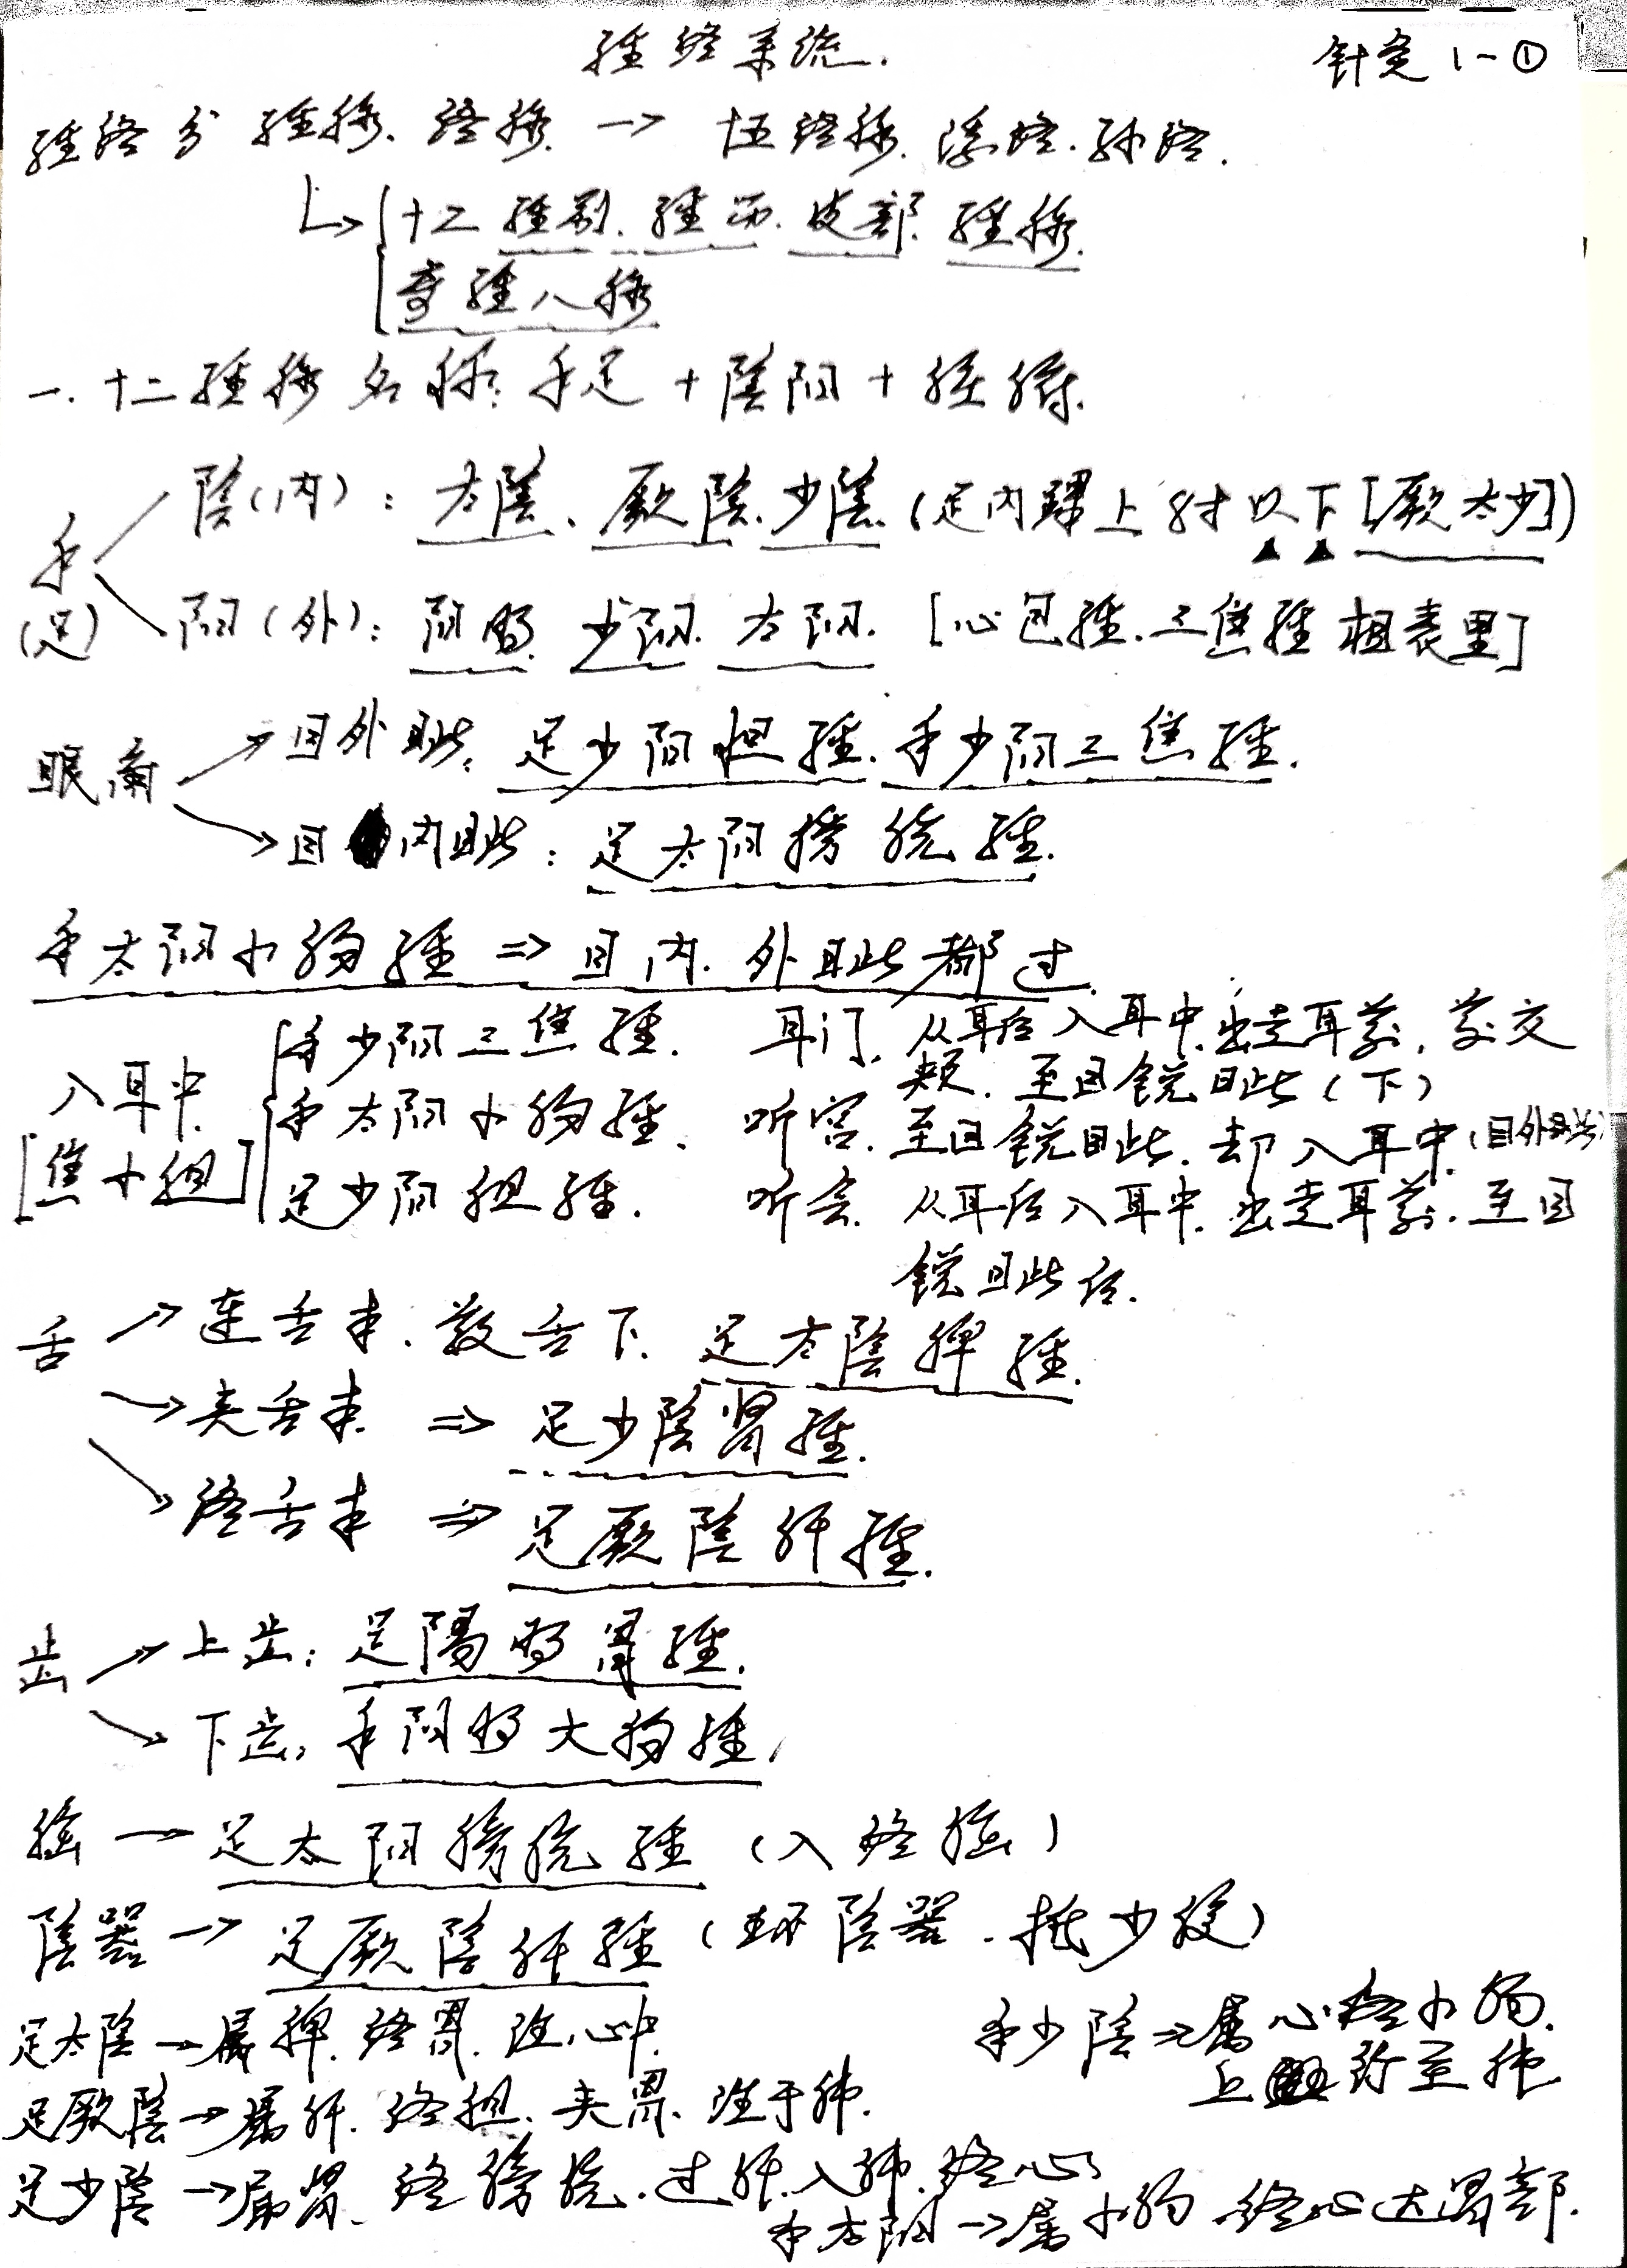 經络系统.
针灸 1-①
經络分 經脉. 络脉. → 十五络脉. 浮络. 孙络.
十二 經别. 經筋. 皮部. 經脉.
奇經八脉
一. 十二經脉名称: 手足 + 陰阳 + 經
手(足)
陰(内): 太陰、厥陰. 少陰. (足内踝上8寸以下[厥太少])
阳(外): 阳明. 少阳. 太阳. [心包經. 三焦經相表里]
眼痛 → 目外眦: 足少阳胆經. 手少阳三焦經.
→ 目内眦: 足太阳膀胱經.
手太阳小肠經 ⇒ 目内. 外眦都过.
入耳中. [焦小胆]
手少阳三焦經. 耳门. 从耳后入耳中. 出走耳前, 前交
颊. 至目锐眦(下)
手太阳小肠經. 听宫. 至目锐眦. 却入耳中. (目外眦)
足少阳胆經. 听会. 从耳后入耳中. 出走耳前. 至目
锐眦后.
舌 → 连舌本. 散舌下. 足太陰脾經.
→ 夹舌本. ⇒ 足少陰肾經.
→ 络舌本 ⇒ 足厥陰肝經.
齿 → 上齿: 足陽明胃經.
→ 下齿: 手阳明大肠經.
脑 → 足太阳膀胱經 (入络脑)
陰器 → 足厥陰肝經 (环陰器. 抵少腹)
足太陰 → 属脾. 络胃. 注心中.
手少陰 → 属心络小肠.
上行至肺
足厥陰 → 属肝. 络胆. 夹胃. 注于肺.
足少陰 → 属肾. 络膀胱. 过肝. 入肺. 络心
手太阳 → 属小肠 络心达胃部.